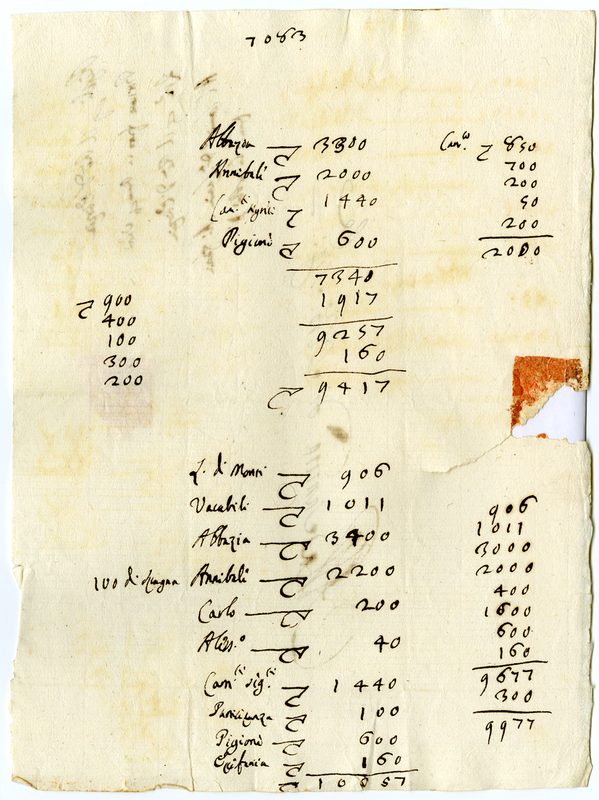 7083
Abbazia 3300
Annibali 2000
1440
Pigioni 600
7340
1917
9257
160
9417
850
700
200
50
200
2000
900
400
100
300
200
L. di Monti 906
Vacabili 1011
Abbazia 3400
100 di Annibali 2200
Carlo 200
Aless.º 40
1440
100
Pigioni 600
Epifania 160
10057
906
1011
3000
2000
400
1600
600
160
9677
300
9977